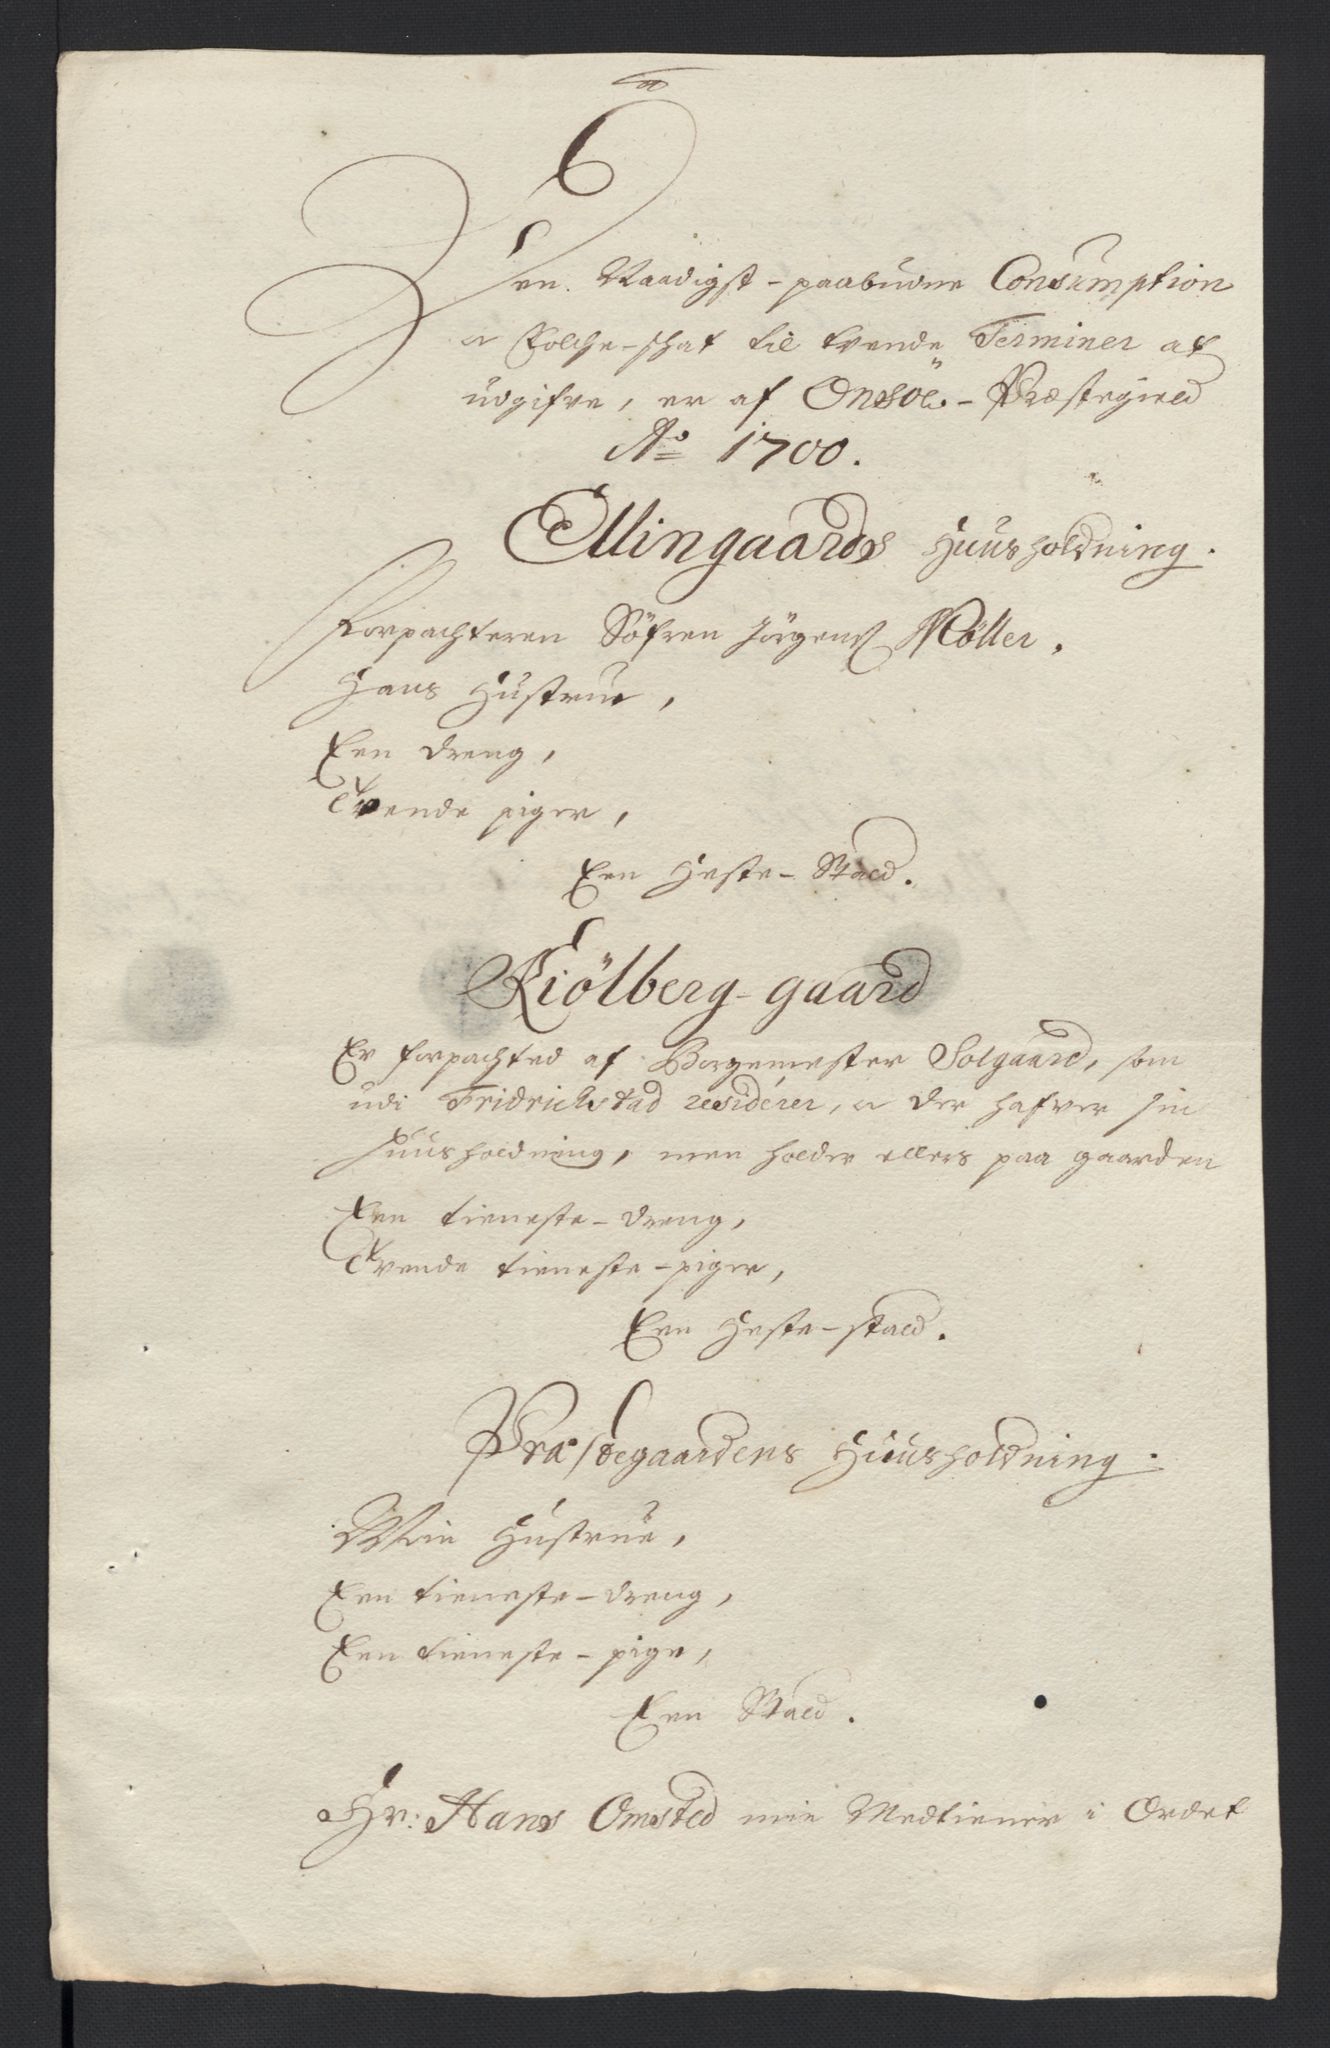 6
Den Naadigst-paabudne Consumption
a Folche-schat til tvende Terminer at
udgifve, er af Onsöe-Præstegield
Ao 1700.
Ellingaards Huusholdning.
Forpachteren Söfren Jörgens Möller,
Hans Hustrue,
Een dreng,
Tvende piger,
Een Heste-Stald.
Kiölberg-gaard
Er forpachted af Borgemester Solgaard, som
udi Fridrichstad residerer, a der hafver sin
Huusholdning, men holder ellers paa gaarden
Een tieneste-dreng,
Tvende tieneste-piger,
Een Heste-stald.
Præstegaardens Huusholdning.
Min Hustrue,
Een tieneste-dreng,
Een tieneste-pige,
Een Stald.
Hr: Hans Omsted min Medtiener i Ordet